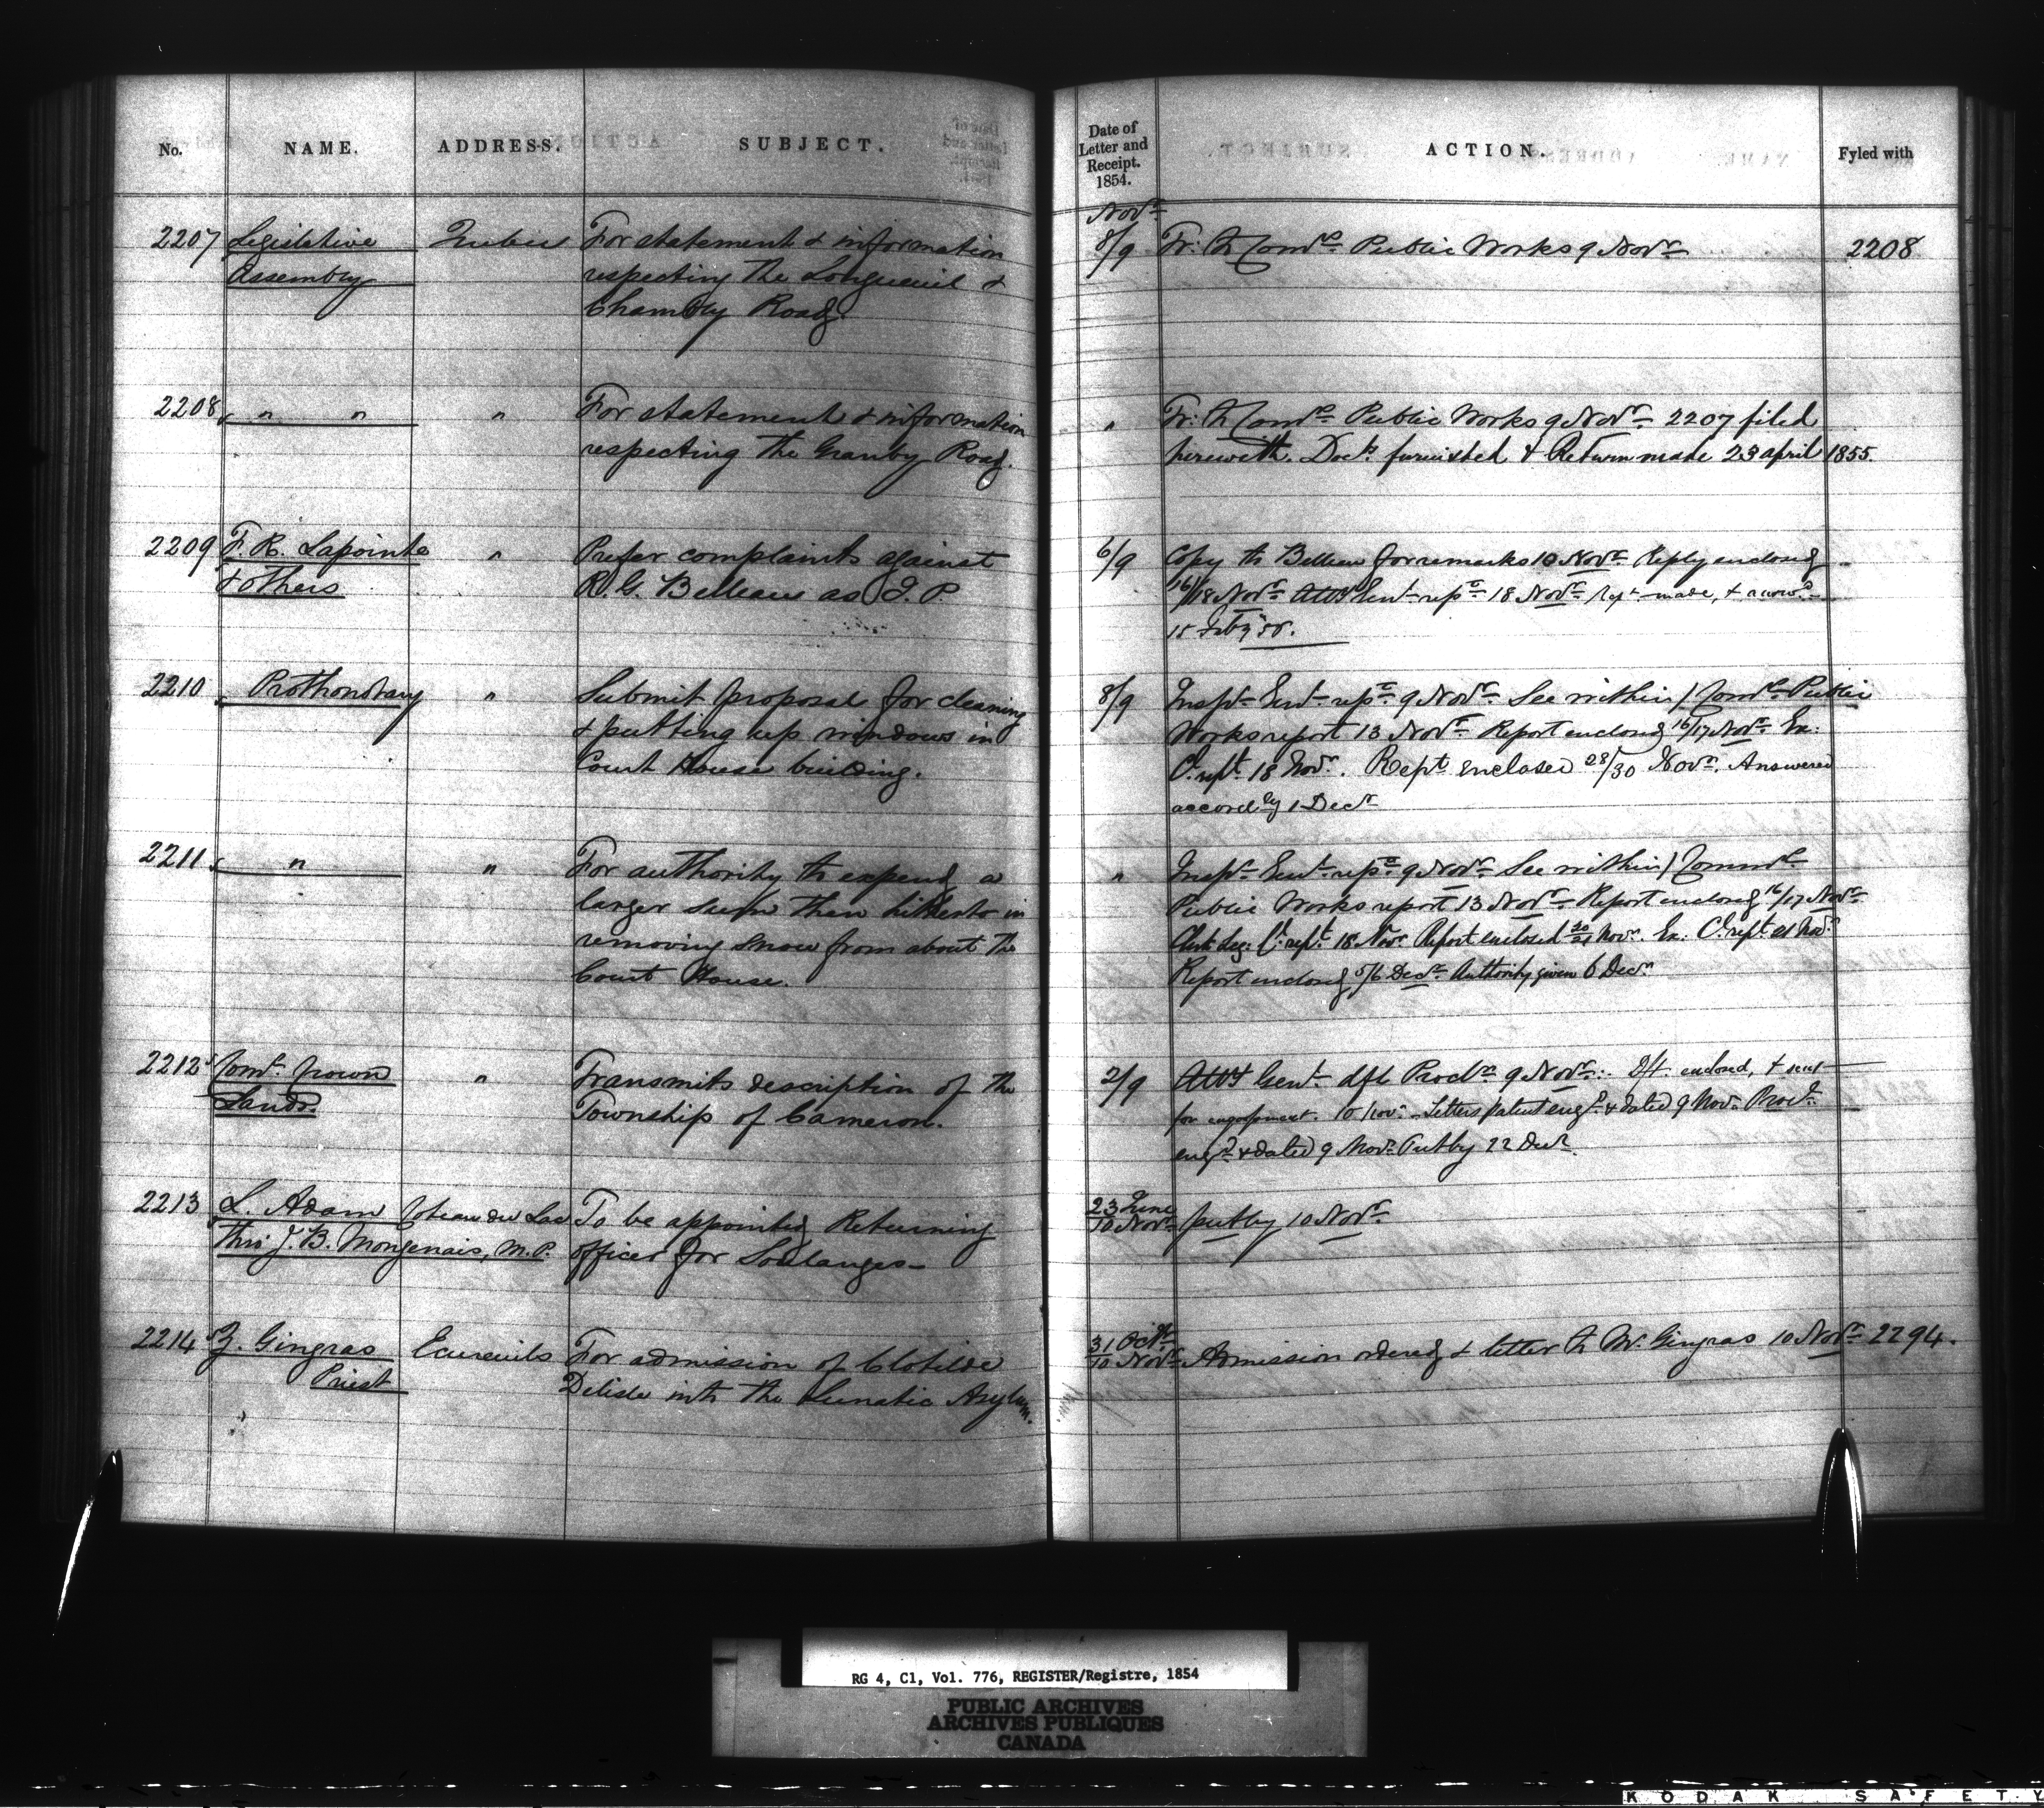 No. NAME. ADDRESS. SUBJECT.
Date of Letter and Receipt. 1854. ACTION. Fyled with
2207 Legislative Quebec For statement & information
Assembly respecting the Longueuil &
Chambly Road.
Novr
8/9 Tr: to Comrs Public Works 9 Novr 2208
2208 " " " For statement & information
respecting the Granby Road.
" Tr: to Comrs Public Works 9 Novr 2207 filed
herewith. Docts furnished & Return made 23 april 1855.
2209 F. R. Lapointe " Prefer complaints against
& others R. G. Belleau as J. P.
6/9 Copy to Belleau for remarks 10 Novr Reply enclosed
16/18 Novr Atty Genl 18 Novr Rept made, &
15 Feby
2210 Prothonotary " Submit proposal for cleaning
& putting up windows in
Court House building.
8/9 Inspr Genl 9 Novr See within / Comrs Public
Works report 13 Novr Report enclosed 16/17 Novr Ex:
C. rept 18 Novr. Rept enclosed 28/30 Novr. Answered
accordly 1 Decr
2211 " " For authority to expend a
larger sum than hitherto in
removing snow from about the
Court House.
" Inspr Genl 9 Novr See within / Commrs
Public Works report 13 Novr Report enclosed 16/17 Novr
18 Novr Report enclosed Novr. Ex: C. rept 21 Novr
Report enclosed 5/6 Decr Authority given 6 Decr
2212 Comr Crown " Transmits description of the
Lands. Township of Cameron.
2/9 Atty Genl dft Procln 9 Novr: Dft. enclosed, & sent
for engrossment. 10 Novr Letters patent engd & dated 9 Nov. Procln
engd & dated 9 Novr Put by 22 Decr
2213 L. Adam Coteau du Lac To be appointed Returning
Thro J. B. Mongenais, M. P. officer for Soulanges
23 June
10 Novr put by 10 Novr
2214 Z. Gingras Ecureuils For admission of Clotilde
Priest Delisle into the Lunatic Asylum.
31 Octr
10 Novr Admission ordered & letter to Mr. Gingras 10 Novr 2294.
RG 4, C1, Vol. 776, REGISTER/Registre, 1854
PUBLIC ARCHIVES
ARCHIVES PUBLIQUES
CANADA
KODAK SAFETY